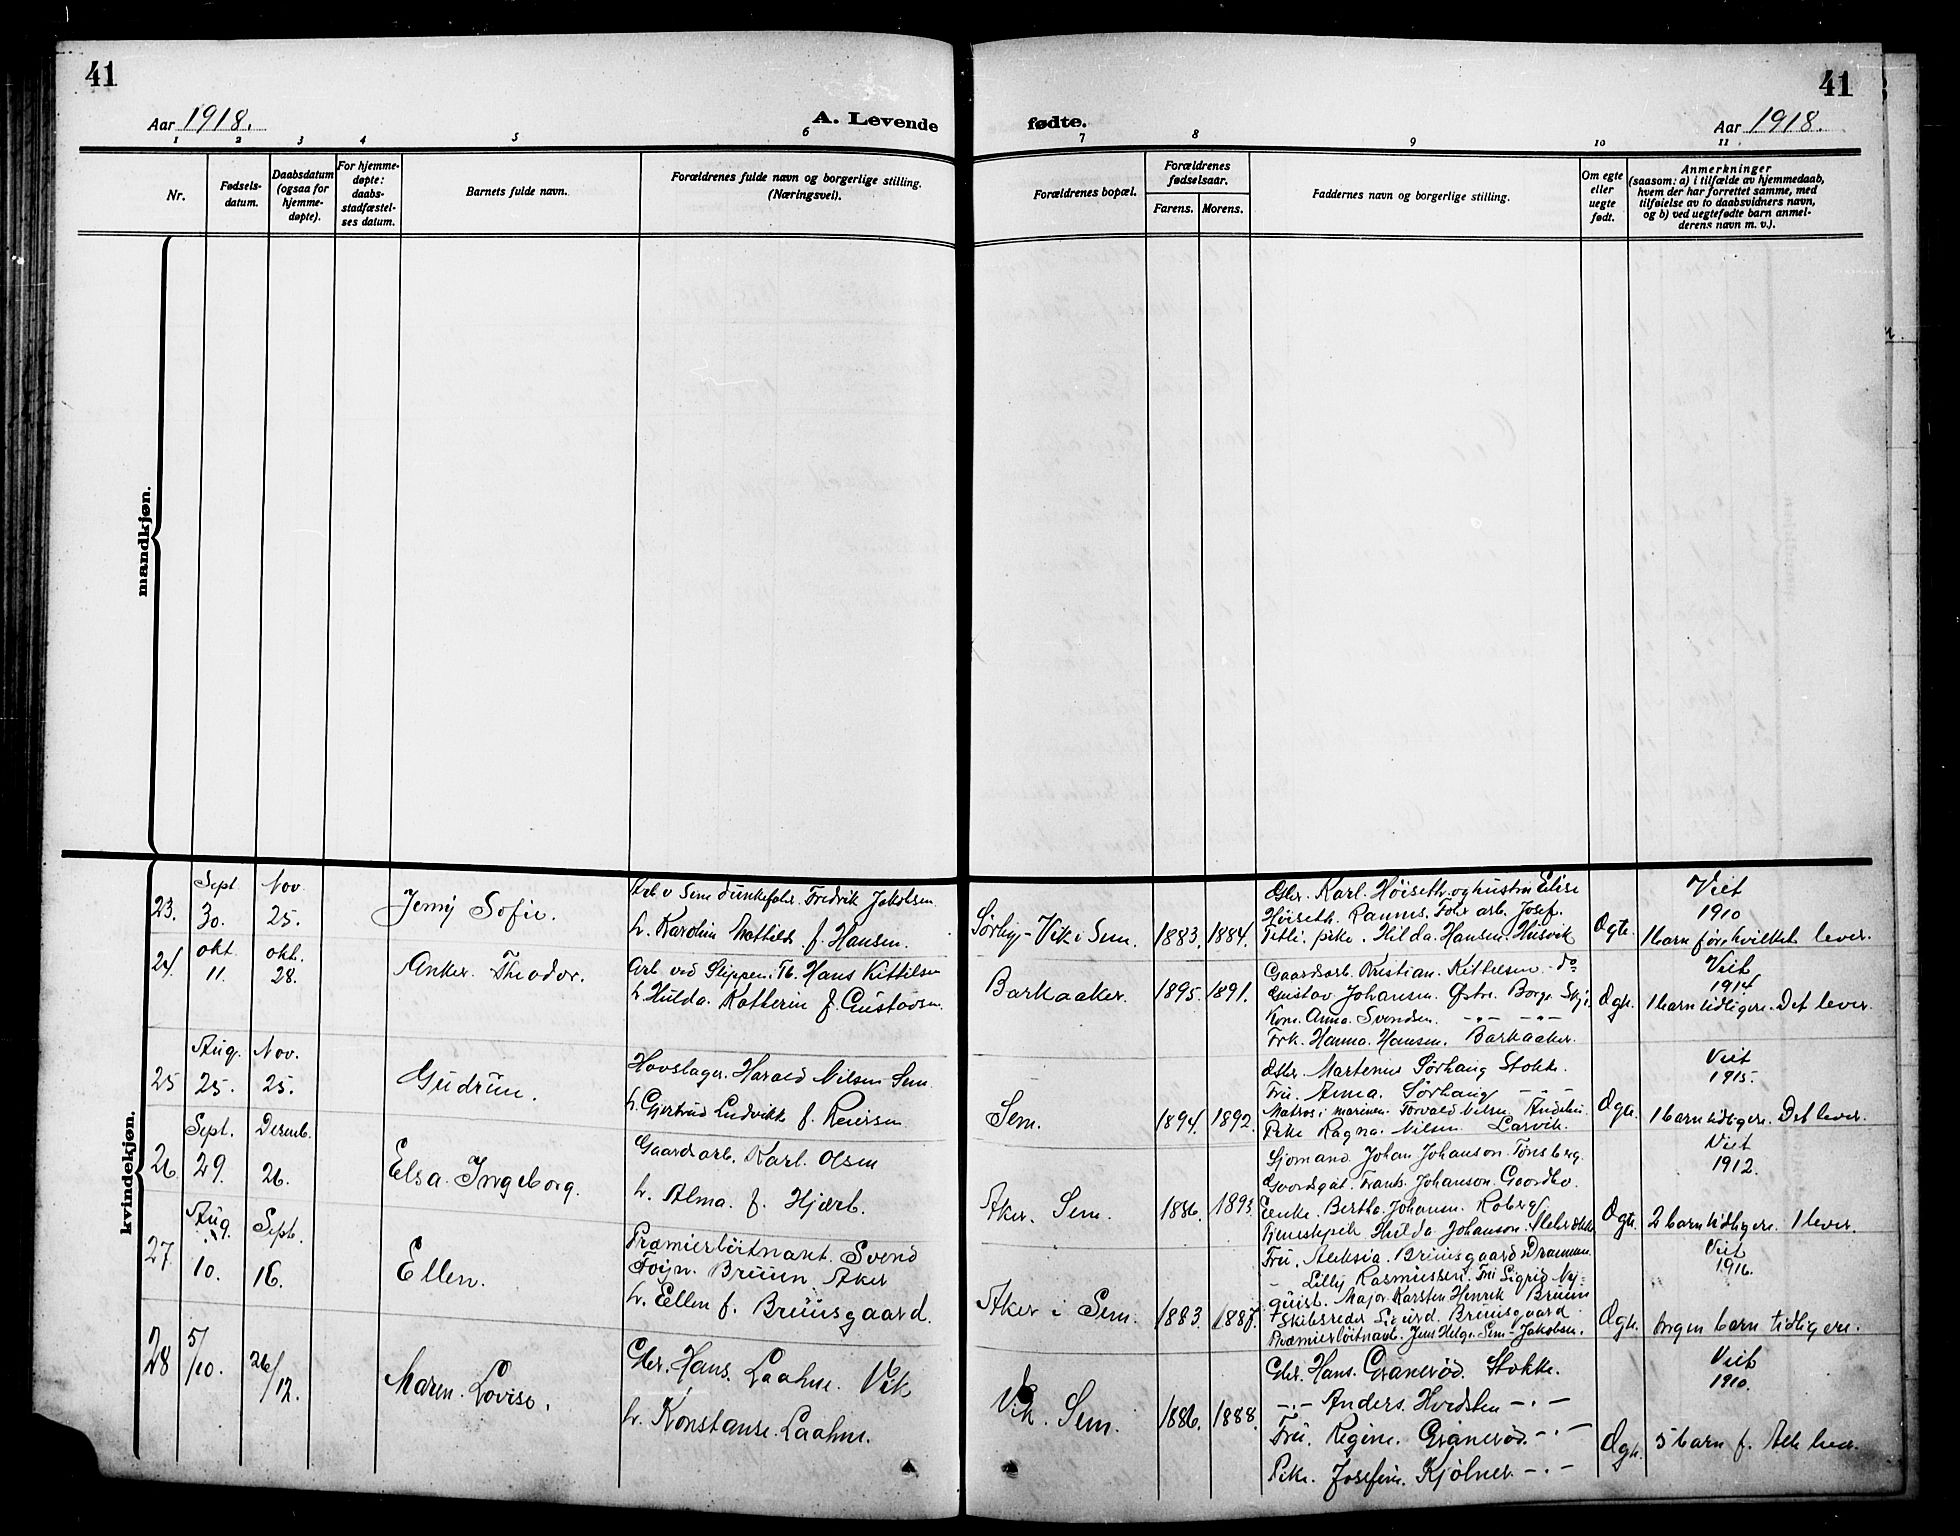 41
41
Aar 1918.
A. Levende
fødte.
Aar 1918.
1 2 3 4 5 6 7 8 9 10 11
Nr.
Fødsels-
datum.
Daabsdatum
(ogsaa for
hjemme-
døpte).
For hjemme-
døpte:
daabs-
stadfæstel-
ses datum.
Barnets fulde navn.
Forældrenes fulde navn og borgerlige stilling.
(Næringsvei).
Forældrenes bopæl.
Forældrenes
fødselsaar.
Farens. Morens.
Faddernes navn og borgerlige stilling.
Om egte
eller
uegte
født.
Anmerkninger
(saasom: a) i tilfælde av hjemmedaab,
hvem der har forrettet samme, med
tilføielse av to daabsvidners navn,
og b) ved uegtefødte barn anmel-
derens navn m. v.).
mandkjøn.
kvindekjøn.
23.
Sept.
30.
Nov.
25.
Jenny Sofie.
Arb v Sem Fredrik Jakobsen.
h. Karolin Mathilde f. Hansen.
Sørby-Vik i Sem.
1883. 1884.
Gbr. Karl. Høiseth. og hustru Elise
Høiseth. Ramnes. Josef.
pike. Hilda. Hansen. Husvik
Ægte.
Viet
1910
1 barn før, hvilket lever.
24.
okt.
11.
okt.
28.
Anker. Theodor.
Arb. ved Slippen. Tb. Hans Kittilsen
h. Hulda. Katherin f. Gustavsen.
Barkaaker.
1895. 1891.
Gaardsarb. Kristian. Kittelsen - do
Gustav Johansen. Østre. Borge
Kone. Anna. Svendsen. -"- -"-
Frk. Hanna. Hansen. Barkaaker.
Ægte.
Viet
1914
1 barn tidligere. Det lever.
25
Aug.
25.
Nov.
25.
Gudrun.
Hovslager. Harald Nilsen Sem
h. Gjertrud Ludvikke f. Reiersen
Sem.
1894. 1892.
Gbr. Martenius Sørhaug Stokke.
Fru. Anna. Sørhaug -"-
Matros i marinen. Torvald Nilsen Andebu.
Pike Ragna. Nilsen Larvik.
Ægte.
Viet
1915.
1 barn tidligere. Det lever.
26
Sept.
29.
Desemb.
26.
Elsa. Ingeborg.
Gaardsarb. Karl. Olsen
h. Alma. f. Hjærb.
Aker. Sem.
1886. 1893.
Sjømand. Johan Johanson. Tønsberg.
Frants. Johanson. Gaardbo.
Enke. Bertha. Johansen. Roberg
Tjenestepike Hilda Johanson. Slebrække
Ægte.
Viet
1912.
2 barn tidligere. 1 lever.
27
Aug.
10.
Sept.
16.
Ellen.
Præmierløitnant. Svend
Foyn. Bruun. Aker
h. Ellen f. Bruusgaard.
Aker i Sem.
1883. 1887.
Fru. Aleksia. Bruusgaard. Drammen.
- Lilly Rasmussen. Fru Sigrid Ny-
quist. Major. Karsten Henrik Bruun
Skibsreder Sigurd. Bruusgaard.
Præmierløitnant. Jens Helge. Sem-Jakobsen.
Ægte.
Viet
1916.
Ingen barn tidligere.
28
5/10.
26/12.
Maren. Lovise.
Gbr. Hans. Laahne. Vik
h. Konstanse. Laahne.
Vik. Sem.
1886. 1888.
Gbr. Hans. Granerød. Stokke.
-"- Anders. Hvidsten -"-
Fru. Regine. Granerød. -"-
Pike. Josefine. Kjølner -"-
Ægte.
Viet
1910.
5 barn f. Alle lever.